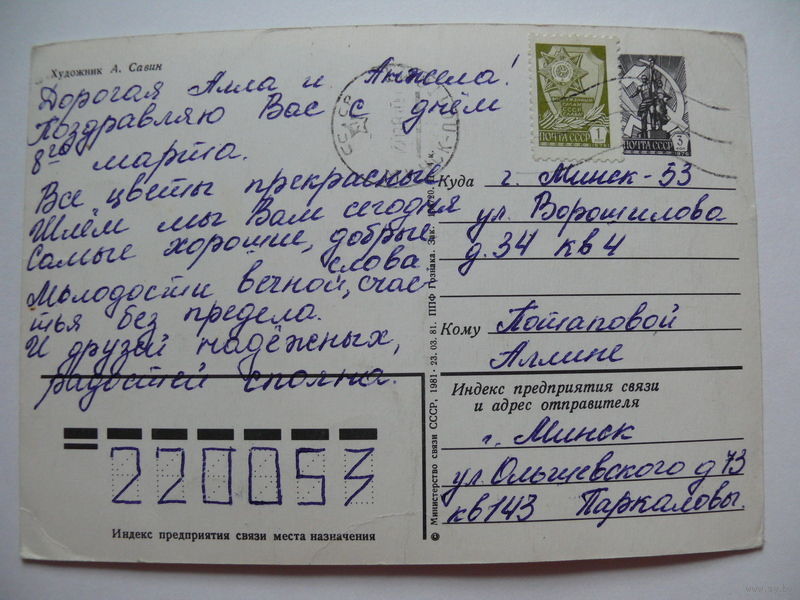 Художник А. Савин
Дорогая Алла и Анжела!
Поздравляю Вас с днём
8го марта.
Все цветы прекрасные
Шлём мы Вам сегодня
Самые хорошие, добрые
слова
Молодости вечной, счас-
тья без предела.
И друзей надёжных,
радостей сполна.
ПОЧТА СССР 1
ПОЧТА СССР 3
Куда г. Минск-53
ул. Ворошилова
д. 34 кв 4
Кому Потаповой
Аллине
Индекс предприятия связи
и адрес отправителя
г. Минск
ул. Ольшевского д 73
кв 143 Паркаловы.
220053
Индекс предприятия связи места назначения
© Министерство связи СССР, 1981- 23. 03. 81. ППФ Гознака. Зак.